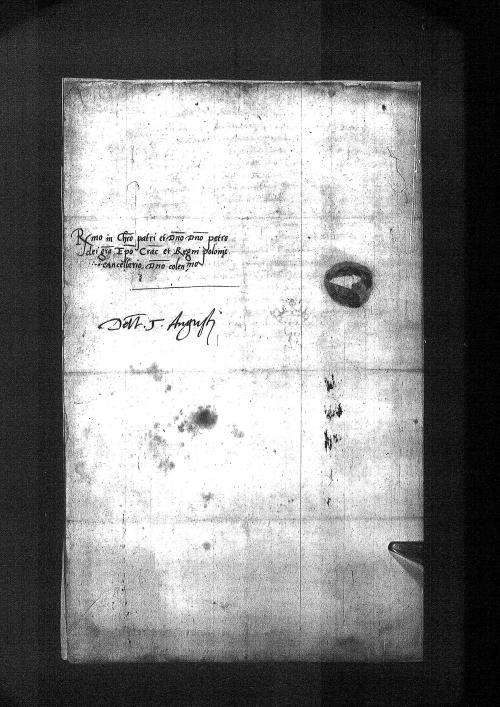 Rmo in Chro patri et Dno Dno petro
dei gra Epo Crac et Regni polonie
cancellario, Dno colenmo
Dott. J. Augusti